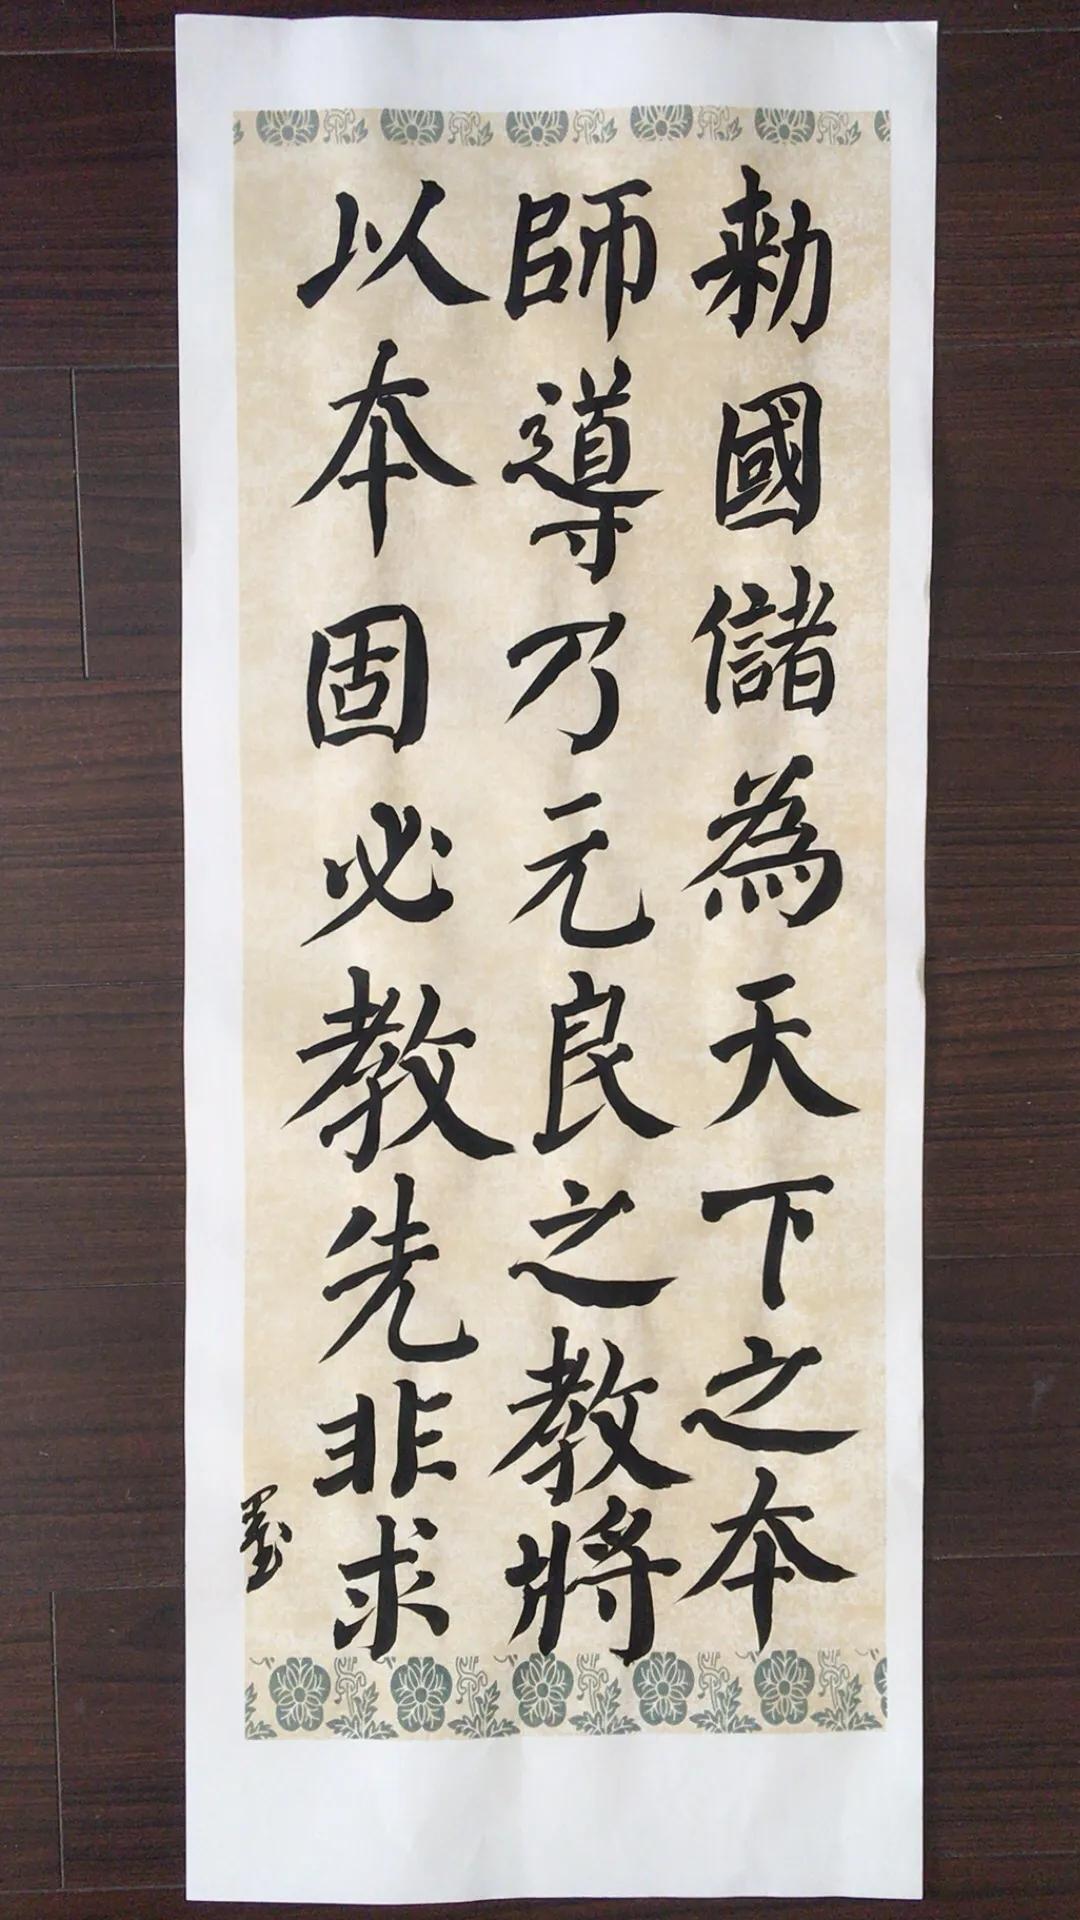 勅國儲為天下之本
師導乃元良之教將
以本固必教先非求
墨